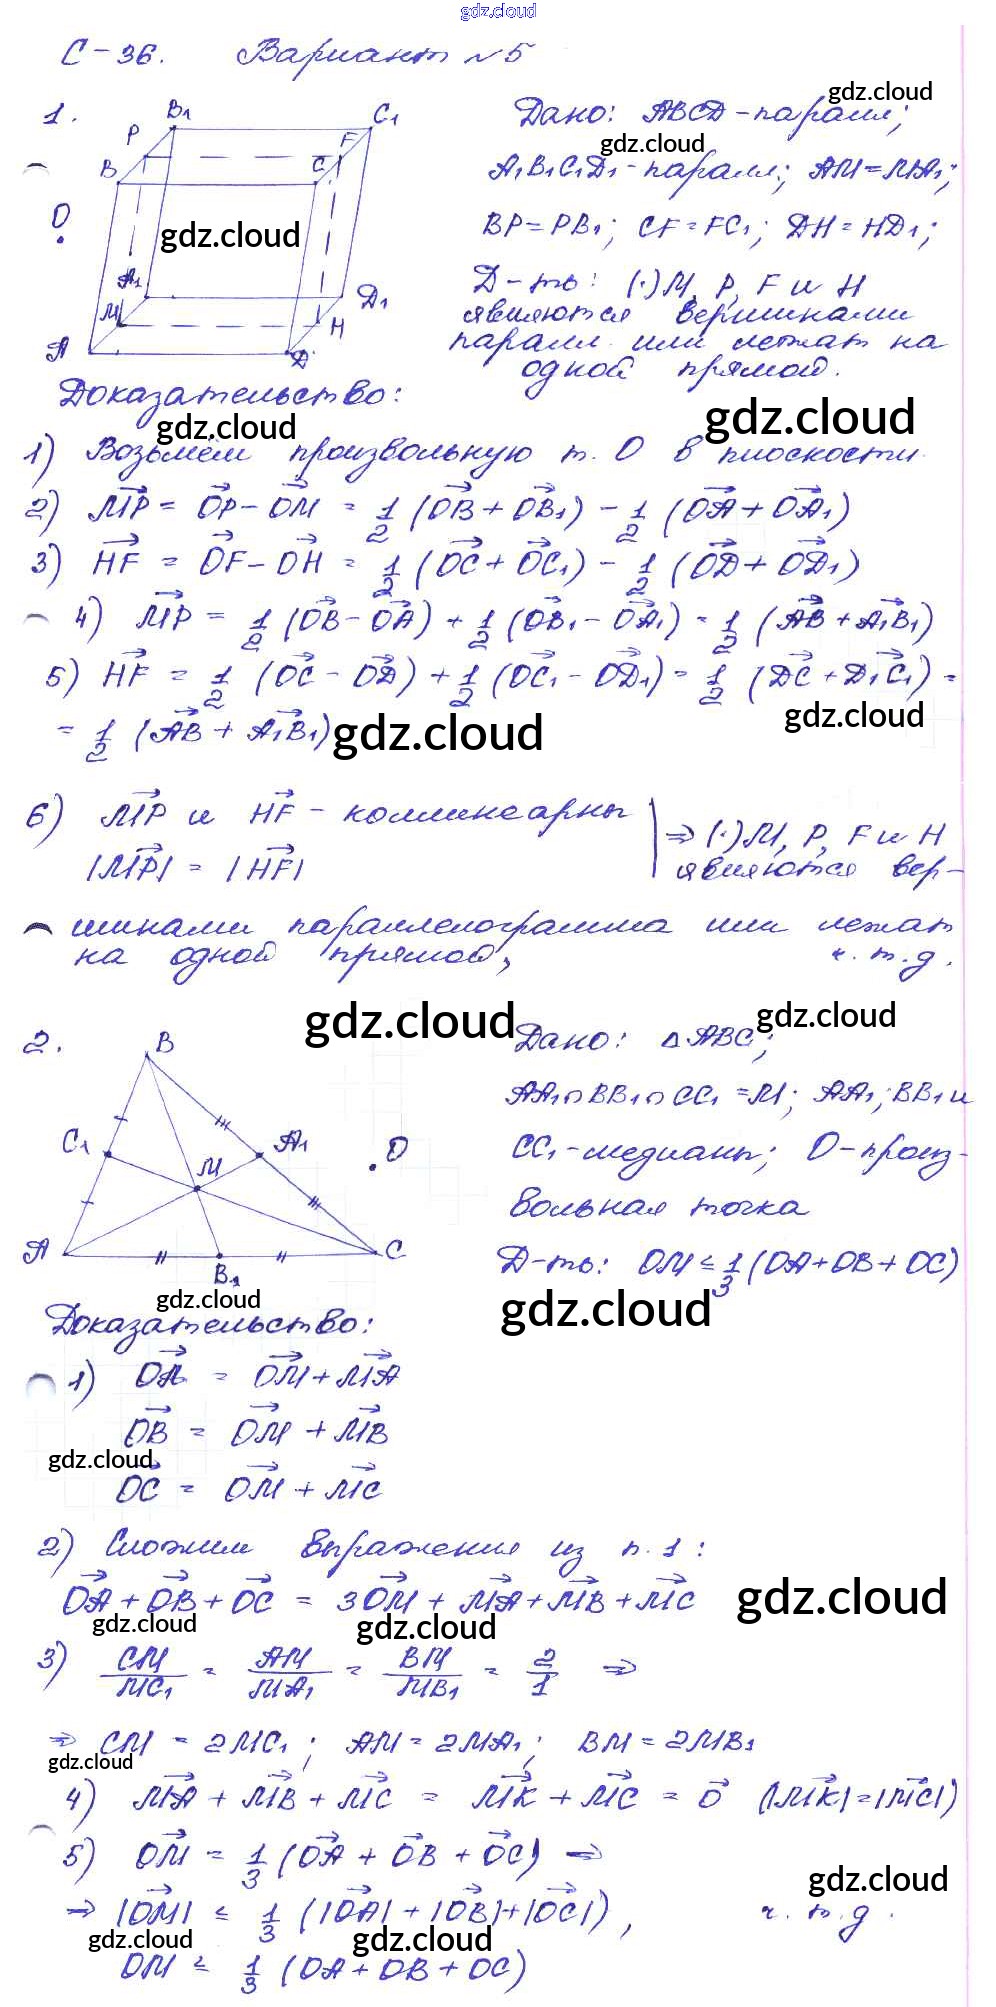 gdz.cloud
С-36. Вариант №5
1.
B₁ C₁
P F
B C
O
A₁ D₁
M H
A D
gdz.cloud
Дано: ABCD - паралл;
gdz.cloud
gdz.cloud
A₁B₁C₁D₁ - паралл; AM = MA₁;
BP = PB₁; CF = FC₁; DH = HD₁;
Д-ть: (·) M, P, F и H
являются вершинами
паралл. или лежат на
одной прямой.
Доказательство:
gdz.cloud
gdz.cloud
1) Возьмём произвольную т. O в плоскости.
2) MP = OP - OM = 1/2 (OB + OB₁) - 1/2 (OA + OA₁)
3) HF = OF - OH = 1/2 (OC + OC₁) - 1/2 (OD + OD₁)
4) MP = 1/2 (OB - OA) + 1/2 (OB₁ - OA₁) = 1/2 (AB + A₁B₁)
5) HF = 1/2 (OC - OD) + 1/2 (OC₁ - OD₁) = 1/2 (DC + D₁C₁) =
= 1/2 (AB + A₁B₁)
gdz.cloud
gdz.cloud
6) MP и HF - коллинеарны
|MP| = |HF|
⇒ (·) M, P, F и H
являются вер-
шинами параллелограмма или лежат
на одной прямой, ч.т.д.
gdz.cloud
gdz.cloud
2.
B
C₁ A₁
M O
A C
B₁
Дано: △ABC;
AA₁∩BB₁∩CC₁ = M; AA₁; BB₁ и
CC₁ - медианы; O - произ-
вольная точка
Д-ть: OM ≤ 1/3 (OA + OB + OC)
gdz.cloud
gdz.cloud
Доказательство:
1) OA = OM + MA
OB = OM + MB
gdz.cloud
OC = OM + MC
2) Сложим выражения из п. 1:
OA + OB + OC = 3OM + MA + MB + MC
gdz.cloud
gdz.cloud
gdz.cloud
3) CM/MC₁ = AM/MA₁ = BM/MB₁ = 2/1 ⇒
⇒ CM = 2MC₁; AM = 2MA₁; BM = 2MB₁
gdz.cloud
4) MA + MB + MC = MK + MC = 0 (|MK| = |MC|)
5) OM = 1/3 (OA + OB + OC) ⇒
gdz.cloud
⇒ |OM| ≤ 1/3 (|OA| + |OB| + |OC|), ч.т.д.
gdz.cloud
gdz.cloud
OM ≤ 1/3 (OA + OB + OC)